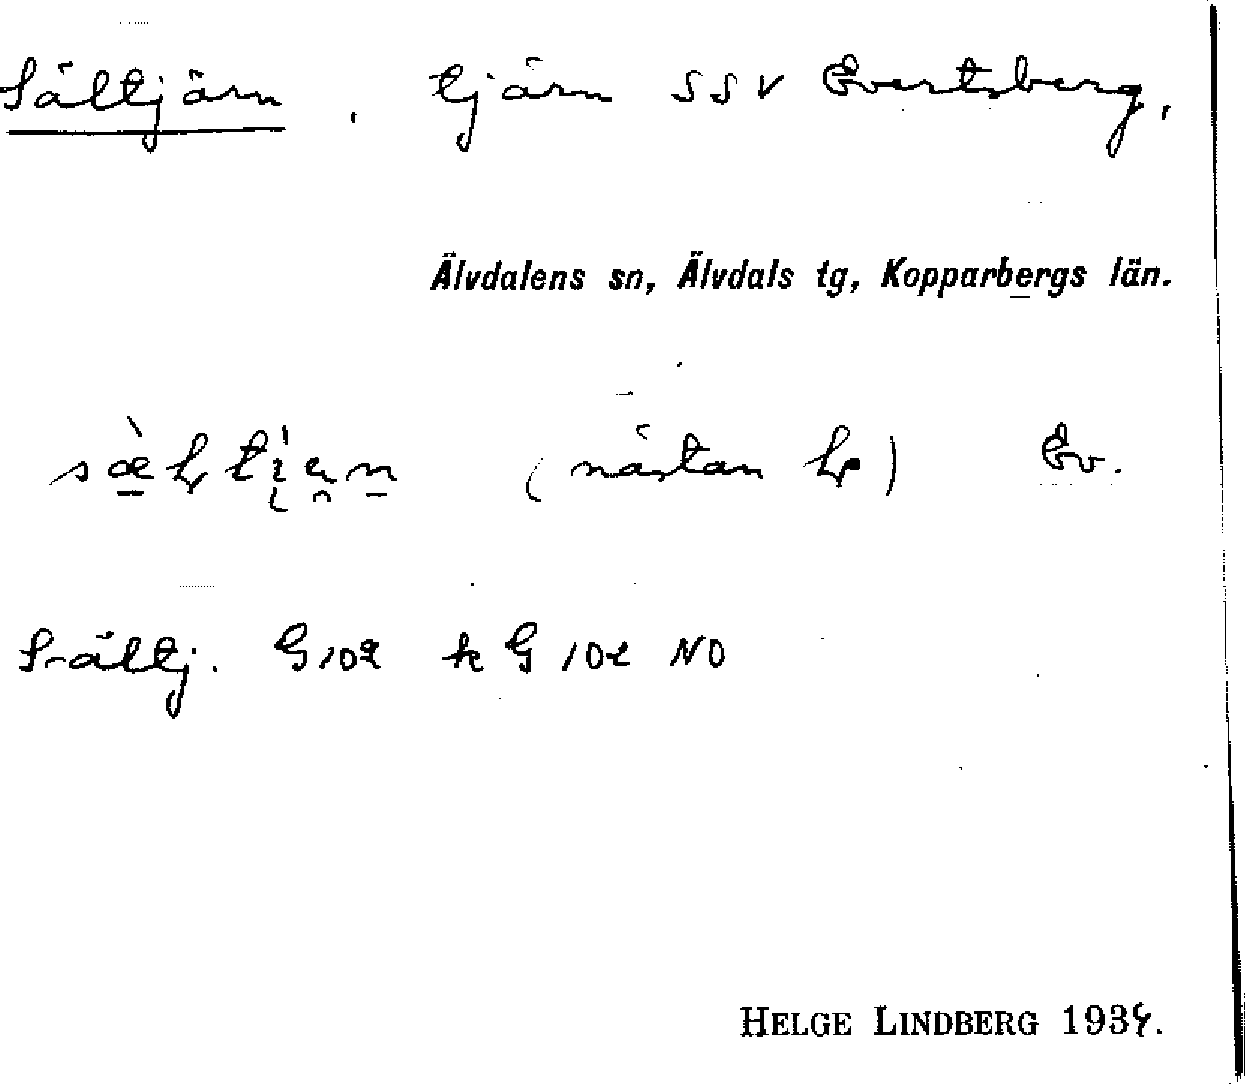 Sältjärn, tjärn SSV Evertsberg,
Älvdalens sn, Älvdals tg, Kopparbergs län.
(nästan) Ev.
Sältj. G102 k G102 NO
HELGE LINDBERG 1934.